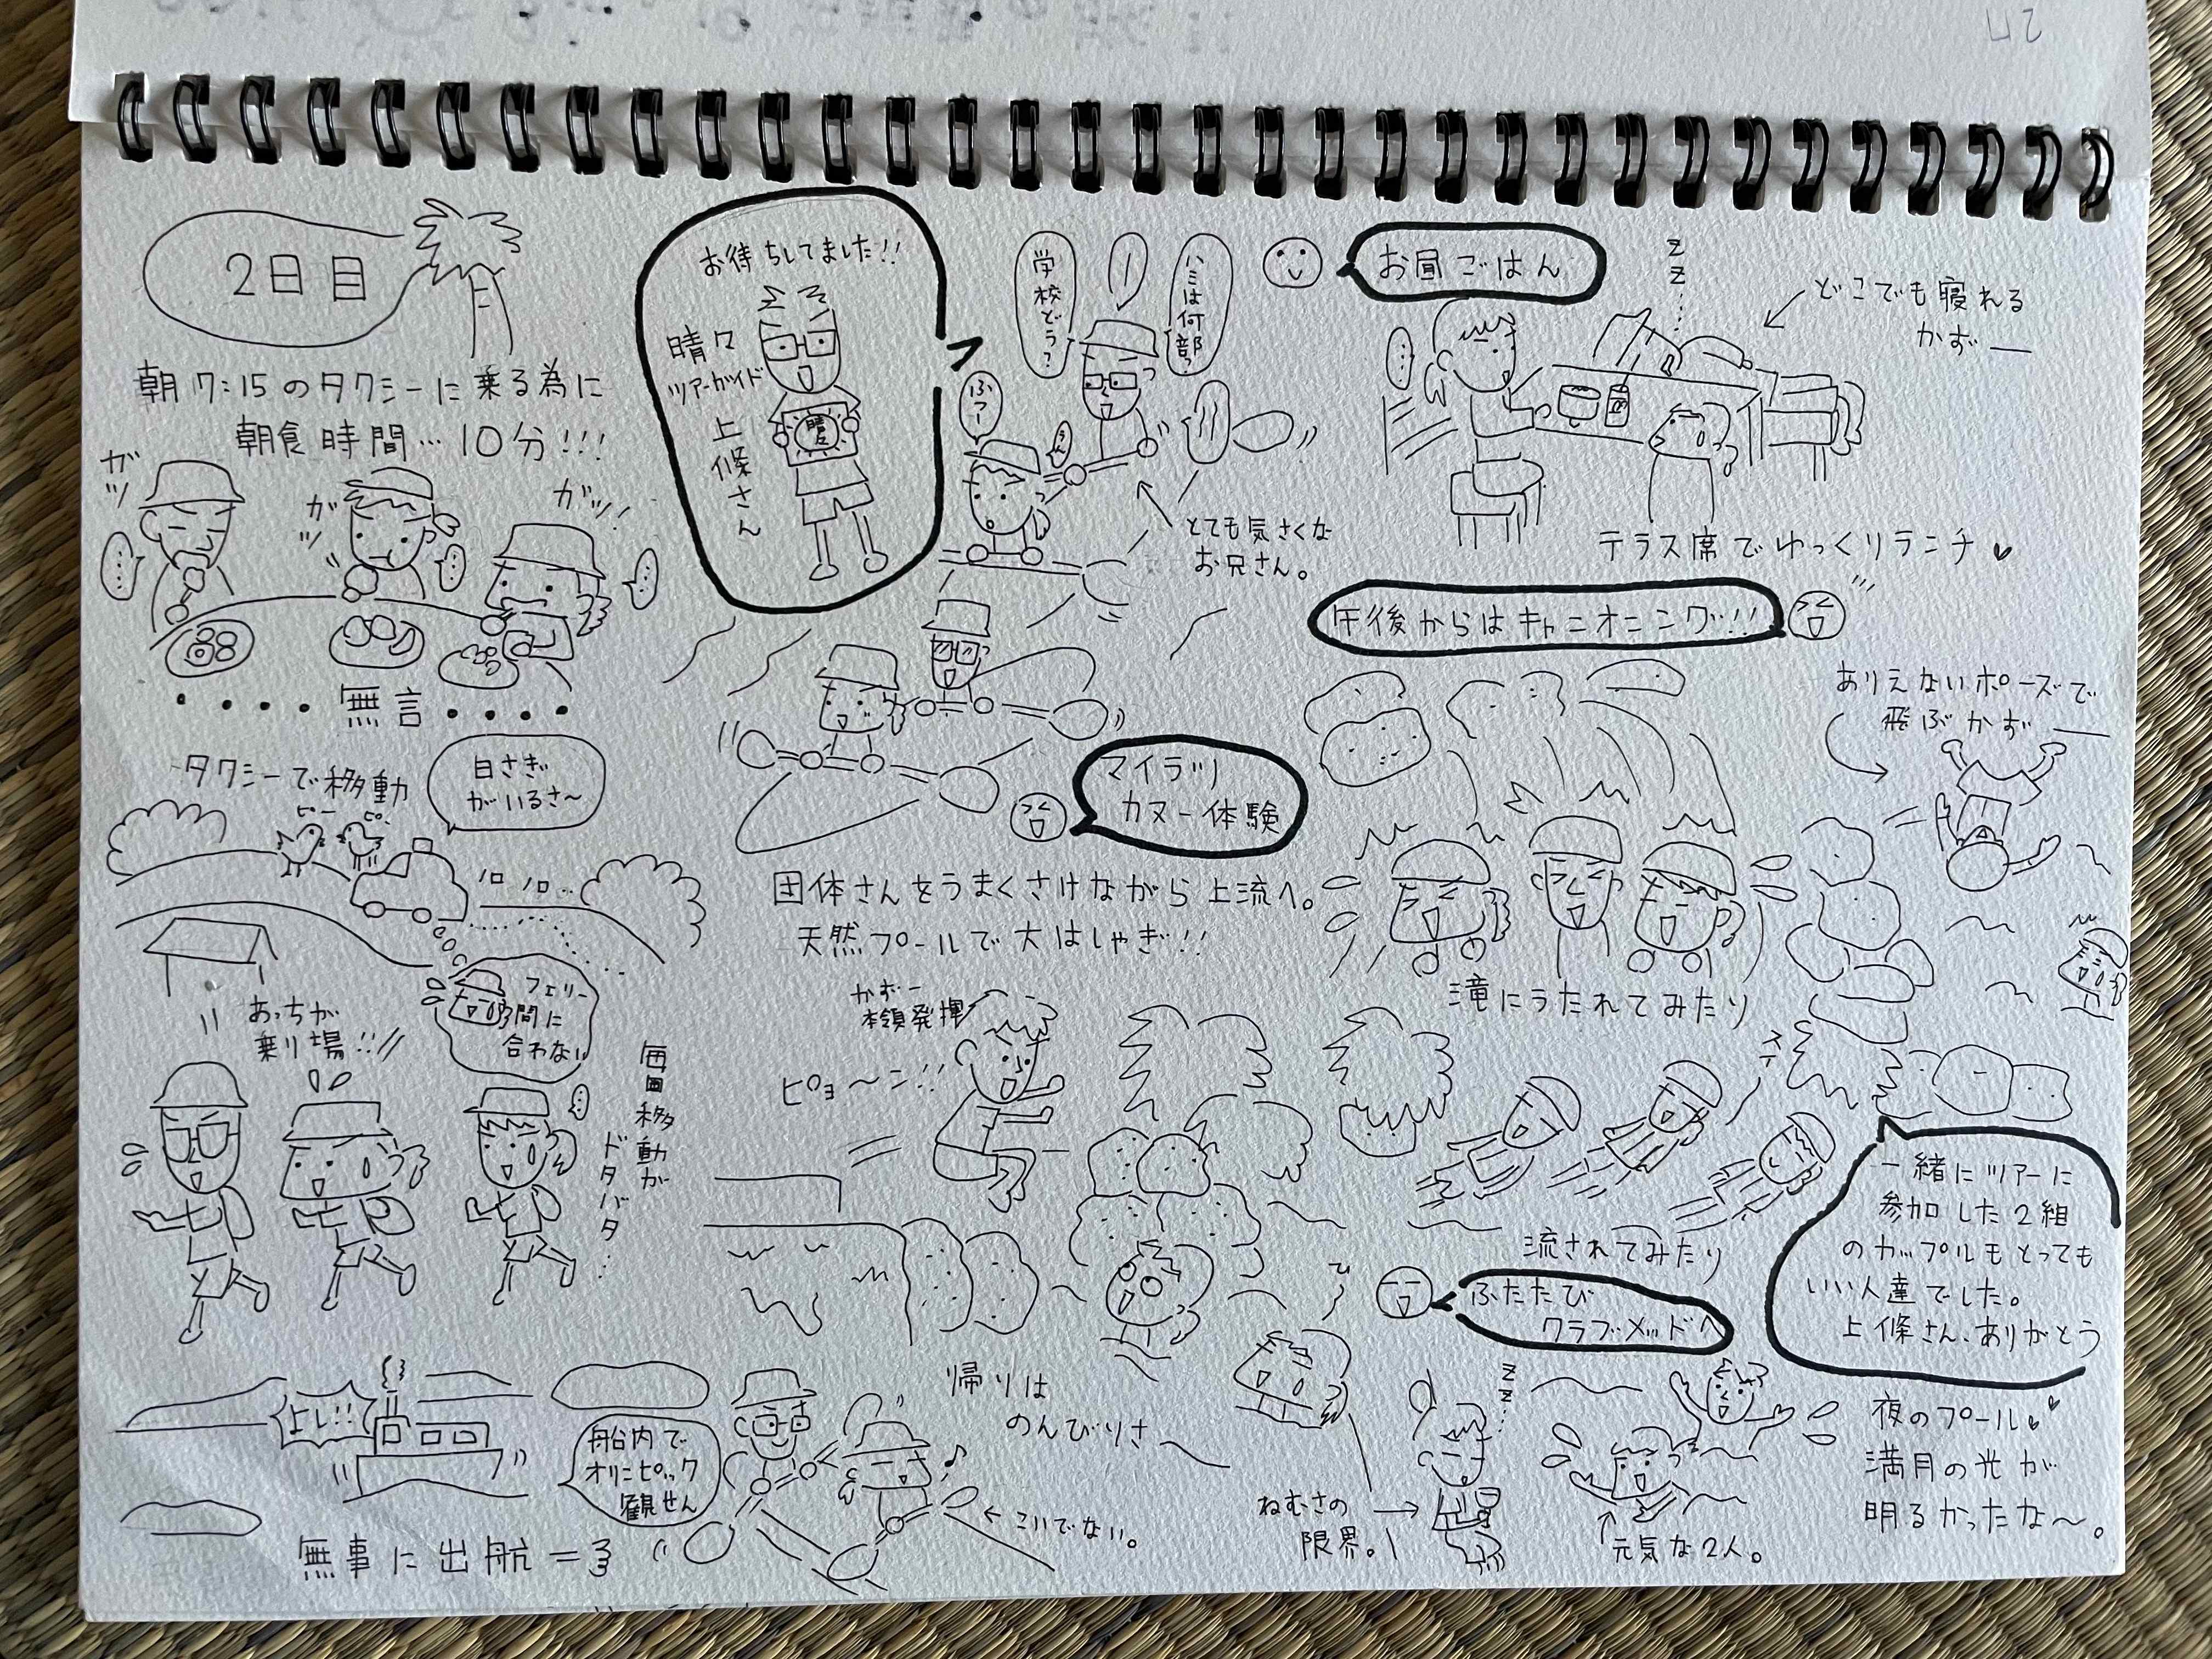 2日目
朝7:15のタクシーに乗る為に
朝食時間…10分!!!
ガッ
ガッ
ガッ!
・・・・無言・・・・
タクシーで移動
白さぎ
がいるさ〜
ピー
ピ、
ソロソロ…
フェリー
間に
合わない
あっちが
乗り場!!
毎回移動が
ドタバタ…
よし!!
無事に出航=3
お待ちしてました!!
晴々
ツアーガイド
上條さん
学校どう?
ハミは何部?
ふつー
とても気さくな
お兄さん。
マイラツ
カヌー体験
団体さんをうまくさけながら上流へ。
天然プールで大はしゃぎ!!
かずー
本領発揮
ピョ〜ン!!
帰りは
のんびりさ
船内で
オリンピック
観せん
♪
←こいでない。
お昼ごはん
zz…
どこでも寝れる
かずー
テラス席でゆっくりランチ♥
午後からはキャニオニング!!
ありえないポーズで
飛ぶかずー
滝にうたれてみたり
スイー
流されてみたり
一緒にツアーに
参加した2組
のカップルもとっても
いい人達でした。
上條さん、ありがとう
ふたたび
クラブメッドへ
zz…
ねむさの
限界。
元気な2人。
夜のプール♥
満月の光が
明るかったな〜。